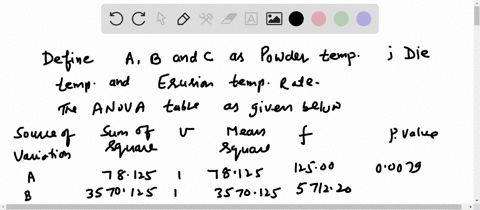 Define A, B and C as Powder temp. ; Die
temp. and Erusion temp. Rate.
The ANOVA table as given below
Source of Variation Sum of Square v Mean Square f P. value
A 78.125 1 78.125 125.00 0.0079
B 3570.125 1 3570.125 5712.20